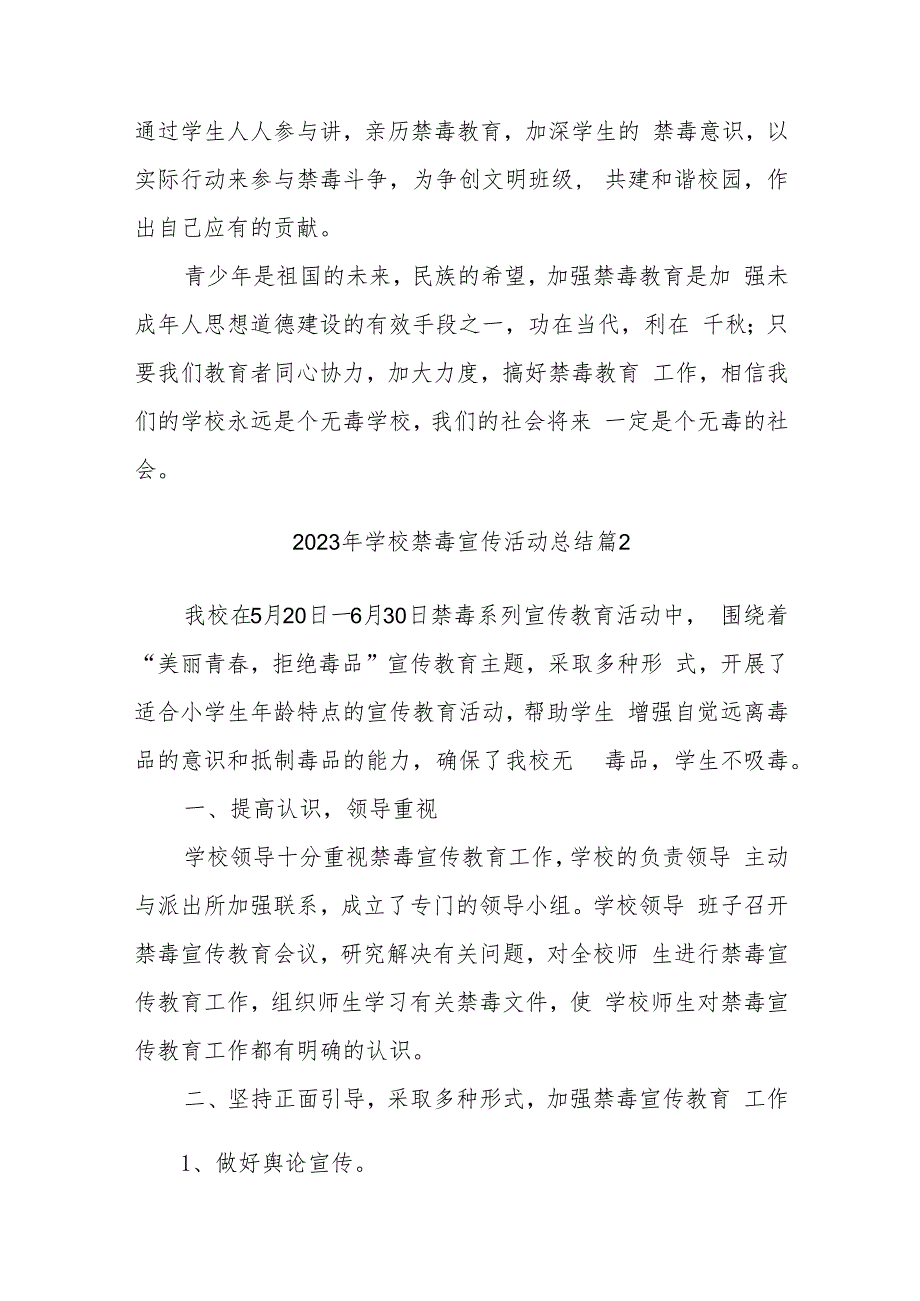 通过学生人人参与讲，亲历禁毒教育，加深学生的 禁毒意识，以
实际行动来参与禁毒斗争，为争创文明班级， 共建和谐校园，作
出自己应有的贡献。
青少年是祖国的未来，民族的希望，加强禁毒教育是加 强未
成年人思想道德建设的有效手段之一，功在当代，利在 千秋；只
要我们教育者同心协力，加大力度，搞好禁毒教育 工作，相信我
们的学校永远是个无毒学校，我们的社会将来 一定是个无毒的社
会。
2023年学校禁毒宣传活动总结篇2
我校在5月20日—6月30日禁毒系列宣传教育活动中， 围绕着
“美丽青春，拒绝毒品”宣传教育主题，采取多种形 式，开展了
适合小学生年龄特点的宣传教育活动，帮助学生 增强自觉远离毒
品的意识和抵制毒品的能力，确保了我校无 毒品，学生不吸毒。
一、提高认识，领导重视
学校领导十分重视禁毒宣传教育工作，学校的负责领导 主动
与派出所加强联系，成立了专门的领导小组。学校领导 班子召开
禁毒宣传教育会议，研究解决有关问题，对全校师 生进行禁毒宣
传教育工作，组织师生学习有关禁毒文件，使 学校师生对禁毒宣
传教育工作都有明确的认识。
二、坚持正面引导，采取多种形式，加强禁毒宣传教育 工作
1、做好舆论宣传。